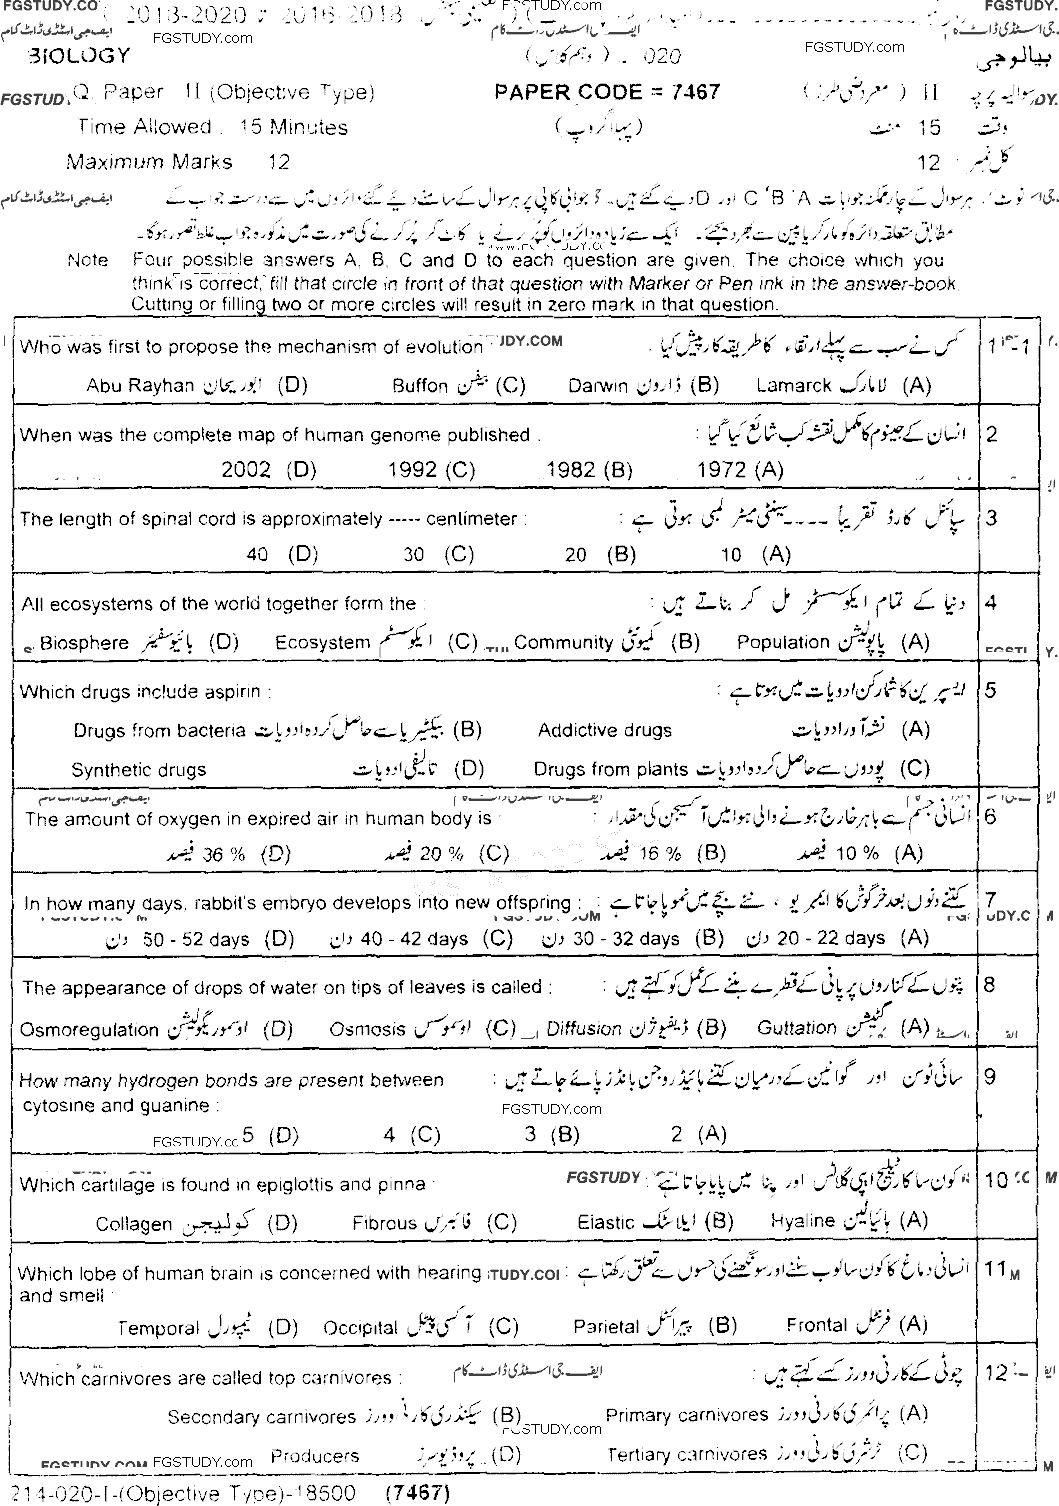 2018-2020 تا 2016-2018
BIOLOGY 020 (دہم کلاس) بیالوجی
Q. Paper II (Objective Type) PAPER CODE = 7467 سوالیہ پرچہ II (معروضی طرز)
Time Allowed : 15 Minutes (پہلا گروپ) وقت 15 منٹ
Maximum Marks 12 کل نمبر : 12
نوٹ : ہر سوال کے چار ممکنہ جوابات A ' B ' C اور D دیے گئے ہیں۔ جوابی کاپی پر ہر سوال کے سامنے دیے گئے دائروں میں سے درست جواب کے
مطابق متعلقہ دائرہ کو مارکر یا پین سے بھر دیجئے۔ ایک سے زیادہ دائروں کو پُر کرنے یا کاٹ کر پُر کرنے کی صورت میں مذکورہ جواب غلط تصور ہوگا۔
Note Four possible answers A, B, C and D to each question are given. The choice which you
think is correct, fill that circle in front of that question with Marker or Pen ink in the answer-book.
Cutting or filling two or more circles will result in zero mark in that question.
Who was first to propose the mechanism of evolution کس نے سب سے پہلے ارتقاء کا طریقہ کار پیش کیا۔ 1-1
Abu Rayhan ابوریحان (D) Buffon بیفن (C) Darwin ڈارون (B) Lamarck لامارک (A)
When was the complete map of human genome published . انسان کے جینوم کا مکمل نقشہ کب شائع کیا گیا : 2
2002 (D) 1992 (C) 1982 (B) 1972 (A)
The length of spinal cord is approximately ----- centimeter : سپائنل کارڈ تقریباً ۔۔۔۔ سینٹی میٹر لمبی ہوتی ہے : 3
40 (D) 30 (C) 20 (B) 10 (A)
All ecosystems of the world together form the : دنیا کے تمام ایکوسسٹمز مل کر بناتے ہیں : 4
Biosphere بائیوسفیئر (D) Ecosystem ایکوسسٹم (C) Community کمیونٹی (B) Population پاپولیشن (A)
Which drugs include aspirin : ایسپرین کا شمار کن ادویات میں ہوتا ہے : 5
Drugs from bacteria بیکٹیریا سے حاصل کردہ ادویات (B) Addictive drugs نشہ آور ادویات (A)
Synthetic drugs تالیفی ادویات (D) Drugs from plants پودوں سے حاصل کردہ ادویات (C)
The amount of oxygen in expired air in human body is : انسانی جسم سے باہر خارج ہونے والی ہوا میں آکسیجن کی مقدار : 6
36 % فیصد (D) 20 % فیصد (C) 16 % فیصد (B) 10 % فیصد (A)
In how many days, rabbit's embryo develops into new offspring : کتنے دنوں بعد خرگوش کا ایمبریو ، نئے بچے میں نمو پا جاتا ہے : 7
50 - 52 days دن (D) 40 - 42 days دن (C) 30 - 32 days دن (B) 20 - 22 days دن (A)
The appearance of drops of water on tips of leaves is called : پتوں کے کناروں پر پانی کے قطرے بننے کے عمل کو کہتے ہیں : 8
Osmoregulation اوسموریگولیشن (D) Osmosis اوسموسس (C) Diffusion ڈیفیوژن (B) Guttation گٹیشن (A)
How many hydrogen bonds are present between سائی ٹوسن اور گوانین کے درمیان کتنے ہائیڈروجن بانڈز پائے جاتے ہیں : 9
cytosine and guanine : FGSTUDY.com
5 (D) 4 (C) 3 (B) 2 (A)
Which cartilage is found in epiglottis and pinna : FGSTUDY کون سا کارٹیلیج ایپی گلاٹس اور پنا میں پایا جاتا ہے : 10
Collagen کولیجن (D) Fibrous فائبرس (C) Elastic ایلاسٹک (B) Hyaline ہائیالین (A)
Which lobe of human brain is concerned with hearing انسانی دماغ کا کون سا لوب سننے اور سونگھنے کی حسوں سے تعلق رکھتا ہے : 11
and smell :
Temporal ٹیمپورل (D) Occipital آکسی پیٹل (C) Parietal پیرائٹل (B) Frontal فرنٹل (A)
Which carnivores are called top carnivores : ایف جی اسٹڈی ڈاٹ کام چوٹی کے کارنی وورز کسے کہتے ہیں : 12
Secondary carnivores سیکنڈری کارنی وورز (B) Primary carnivores پرائمری کارنی وورز (A)
FGSTUDY.com Producers پروڈیوسرز (D) FGSTUDY.com Tertiary carnivores ٹرشری کارنی وورز (C)
214-020-I-(Objective Type)-18500 (7467)